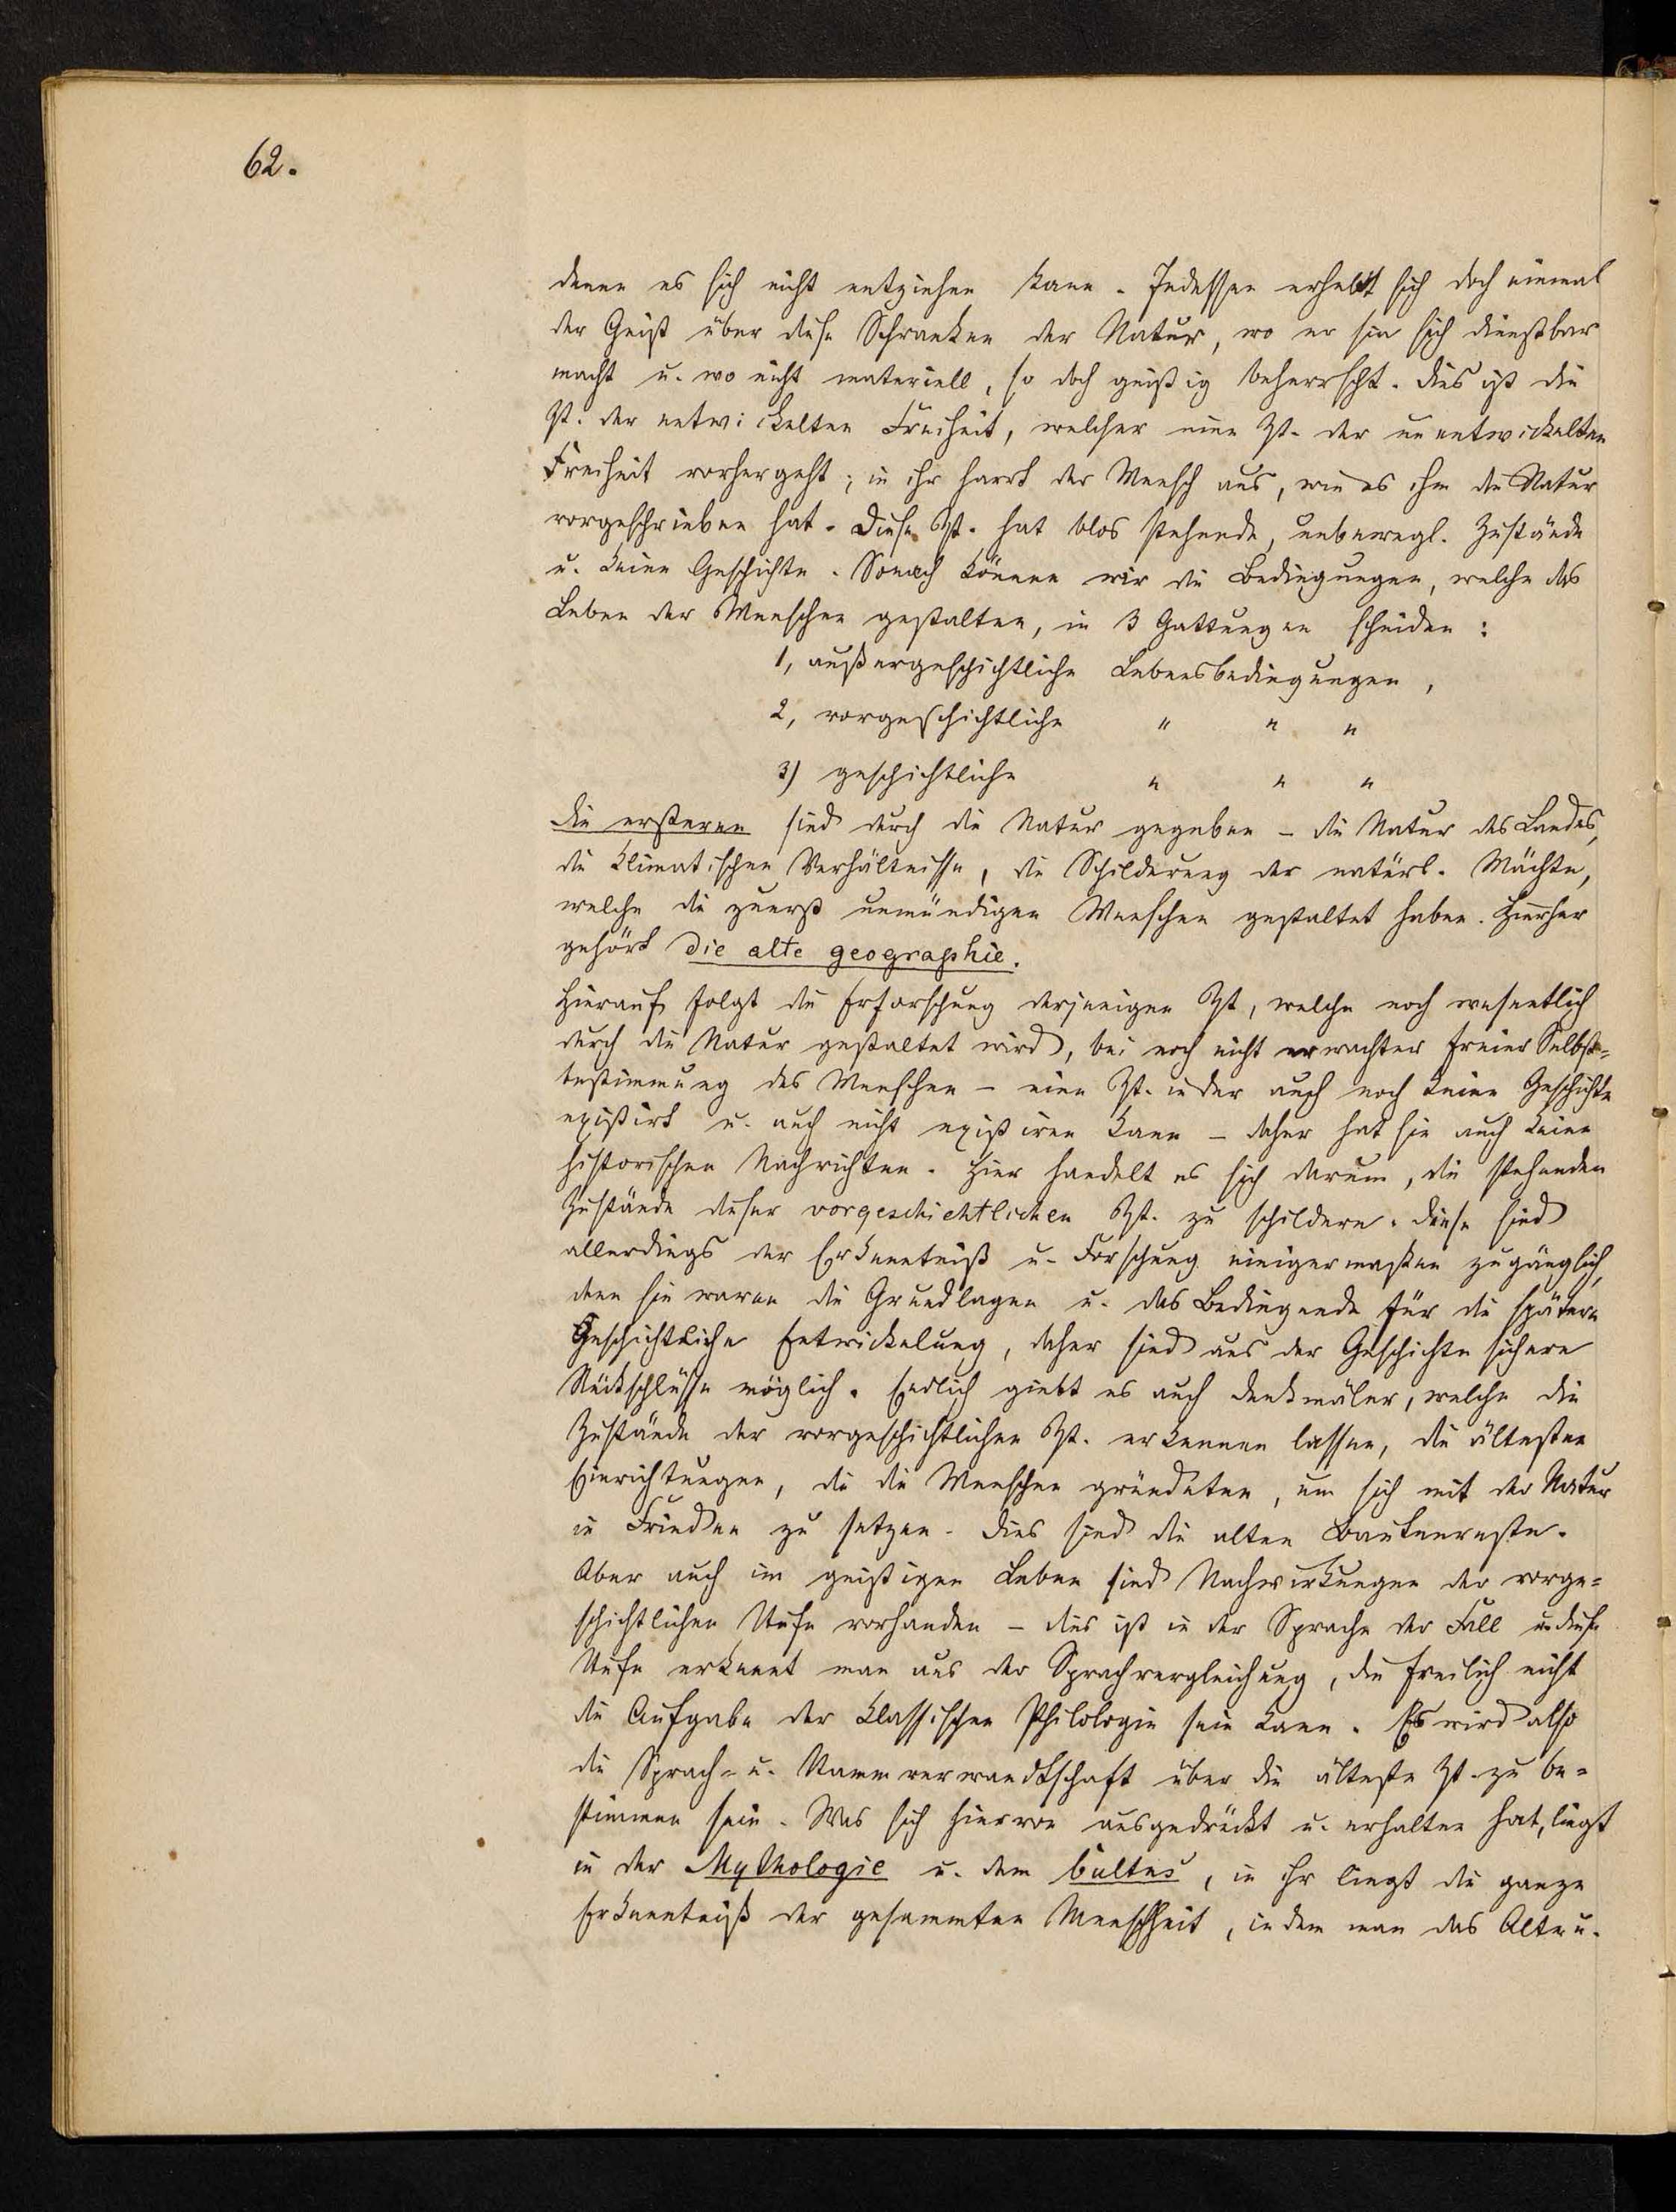 62.
denen es sich nicht entziehen kann. Indessen erhebt sich doch einmal
der Geist über diese Schranken der Natur, wo er sie sich dienstbar
macht u. wo nicht materiell, so doch geistig beherrscht. dies ist die
Zt. der entwickelten Freiheit, welcher eine Zt. der unentwickelten
Freiheit vorhergeht; in ihr harrt der Mensch aus, wie es ihm die Natur
vorgeschrieben hat. Diese Zt. hat blos stehende, unbewegl. Zustände
u. keine Geschichte. Sonach können wir die Bedingungen, welche das
Leben der Menschen gestalten, in 3 Gattungen scheiden:
1, außergeschichtliche Lebensbedingungen,
2, vorgeschichtliche " " "
3) geschichtliche " " "
die ersteren sind durch die Natur gegeben – die Natur des Landes,
die klimatischen Verhältnisse, die Schilderung der natürl. Mächte,
welche die zuerst unmündigen Menschen gestaltet haben. Hierher
gehört die alte geographie.
Hierauf folgt die Erforschung derjenigen Zt, welche noch wesentlich
durch die Natur gestaltet wird, bei noch nicht erwachter freier Selbst=
bestimmung des Menschen – eine Zt. in der auch noch keine Geschichte
existirt u. auch nicht existiren kann – daher hat sie auch keine
historischen Nachrichten. Hier handelt es sich darum, die stehenden
Zustände dieser vorgeschichtlichen Zt. zu schildern. diese sind
allerdings der Erkenntniß u. Forschung einigermaßen zugänglich,
denn sie waren die Grundlagen u. das Bedingende für die spätere
Geschichtliche Entwickelung, daher sind aus der Geschichte sichere
Rückschlüsse möglich. Endlich giebt es auch denkmäler, welche die
Zustände der vorgeschichtlichen Zt. erkennen lassen, die ältesten
Einrichtungen, die die Menschen gründeten, um sich mit der Natur
in Frieden zu setzen. dies sind die alten Bautenreste.
Aber auch im geistigen Leben sind Nachwirkungen der vorge=
schichtlichen Stufe vorhanden – dies ist in der Sprache der Fall u. diese
Stufe erkennt man aus der Sprachvergleichung, die freilich nicht
die Aufgabe der klassischen Philologie sein kann. Es wird also
die Sprach- u. Stammverwandtschaft über die älteste Zt. zu be=
stimmen sein. Was sich hiervon ausgedrückt u. erhalten hat, liegt
in der Mythologie u. dem Cultus, in ihr liegt die ganze
Erkenntniß der gesammten Menschheit, indem man das Alte u.